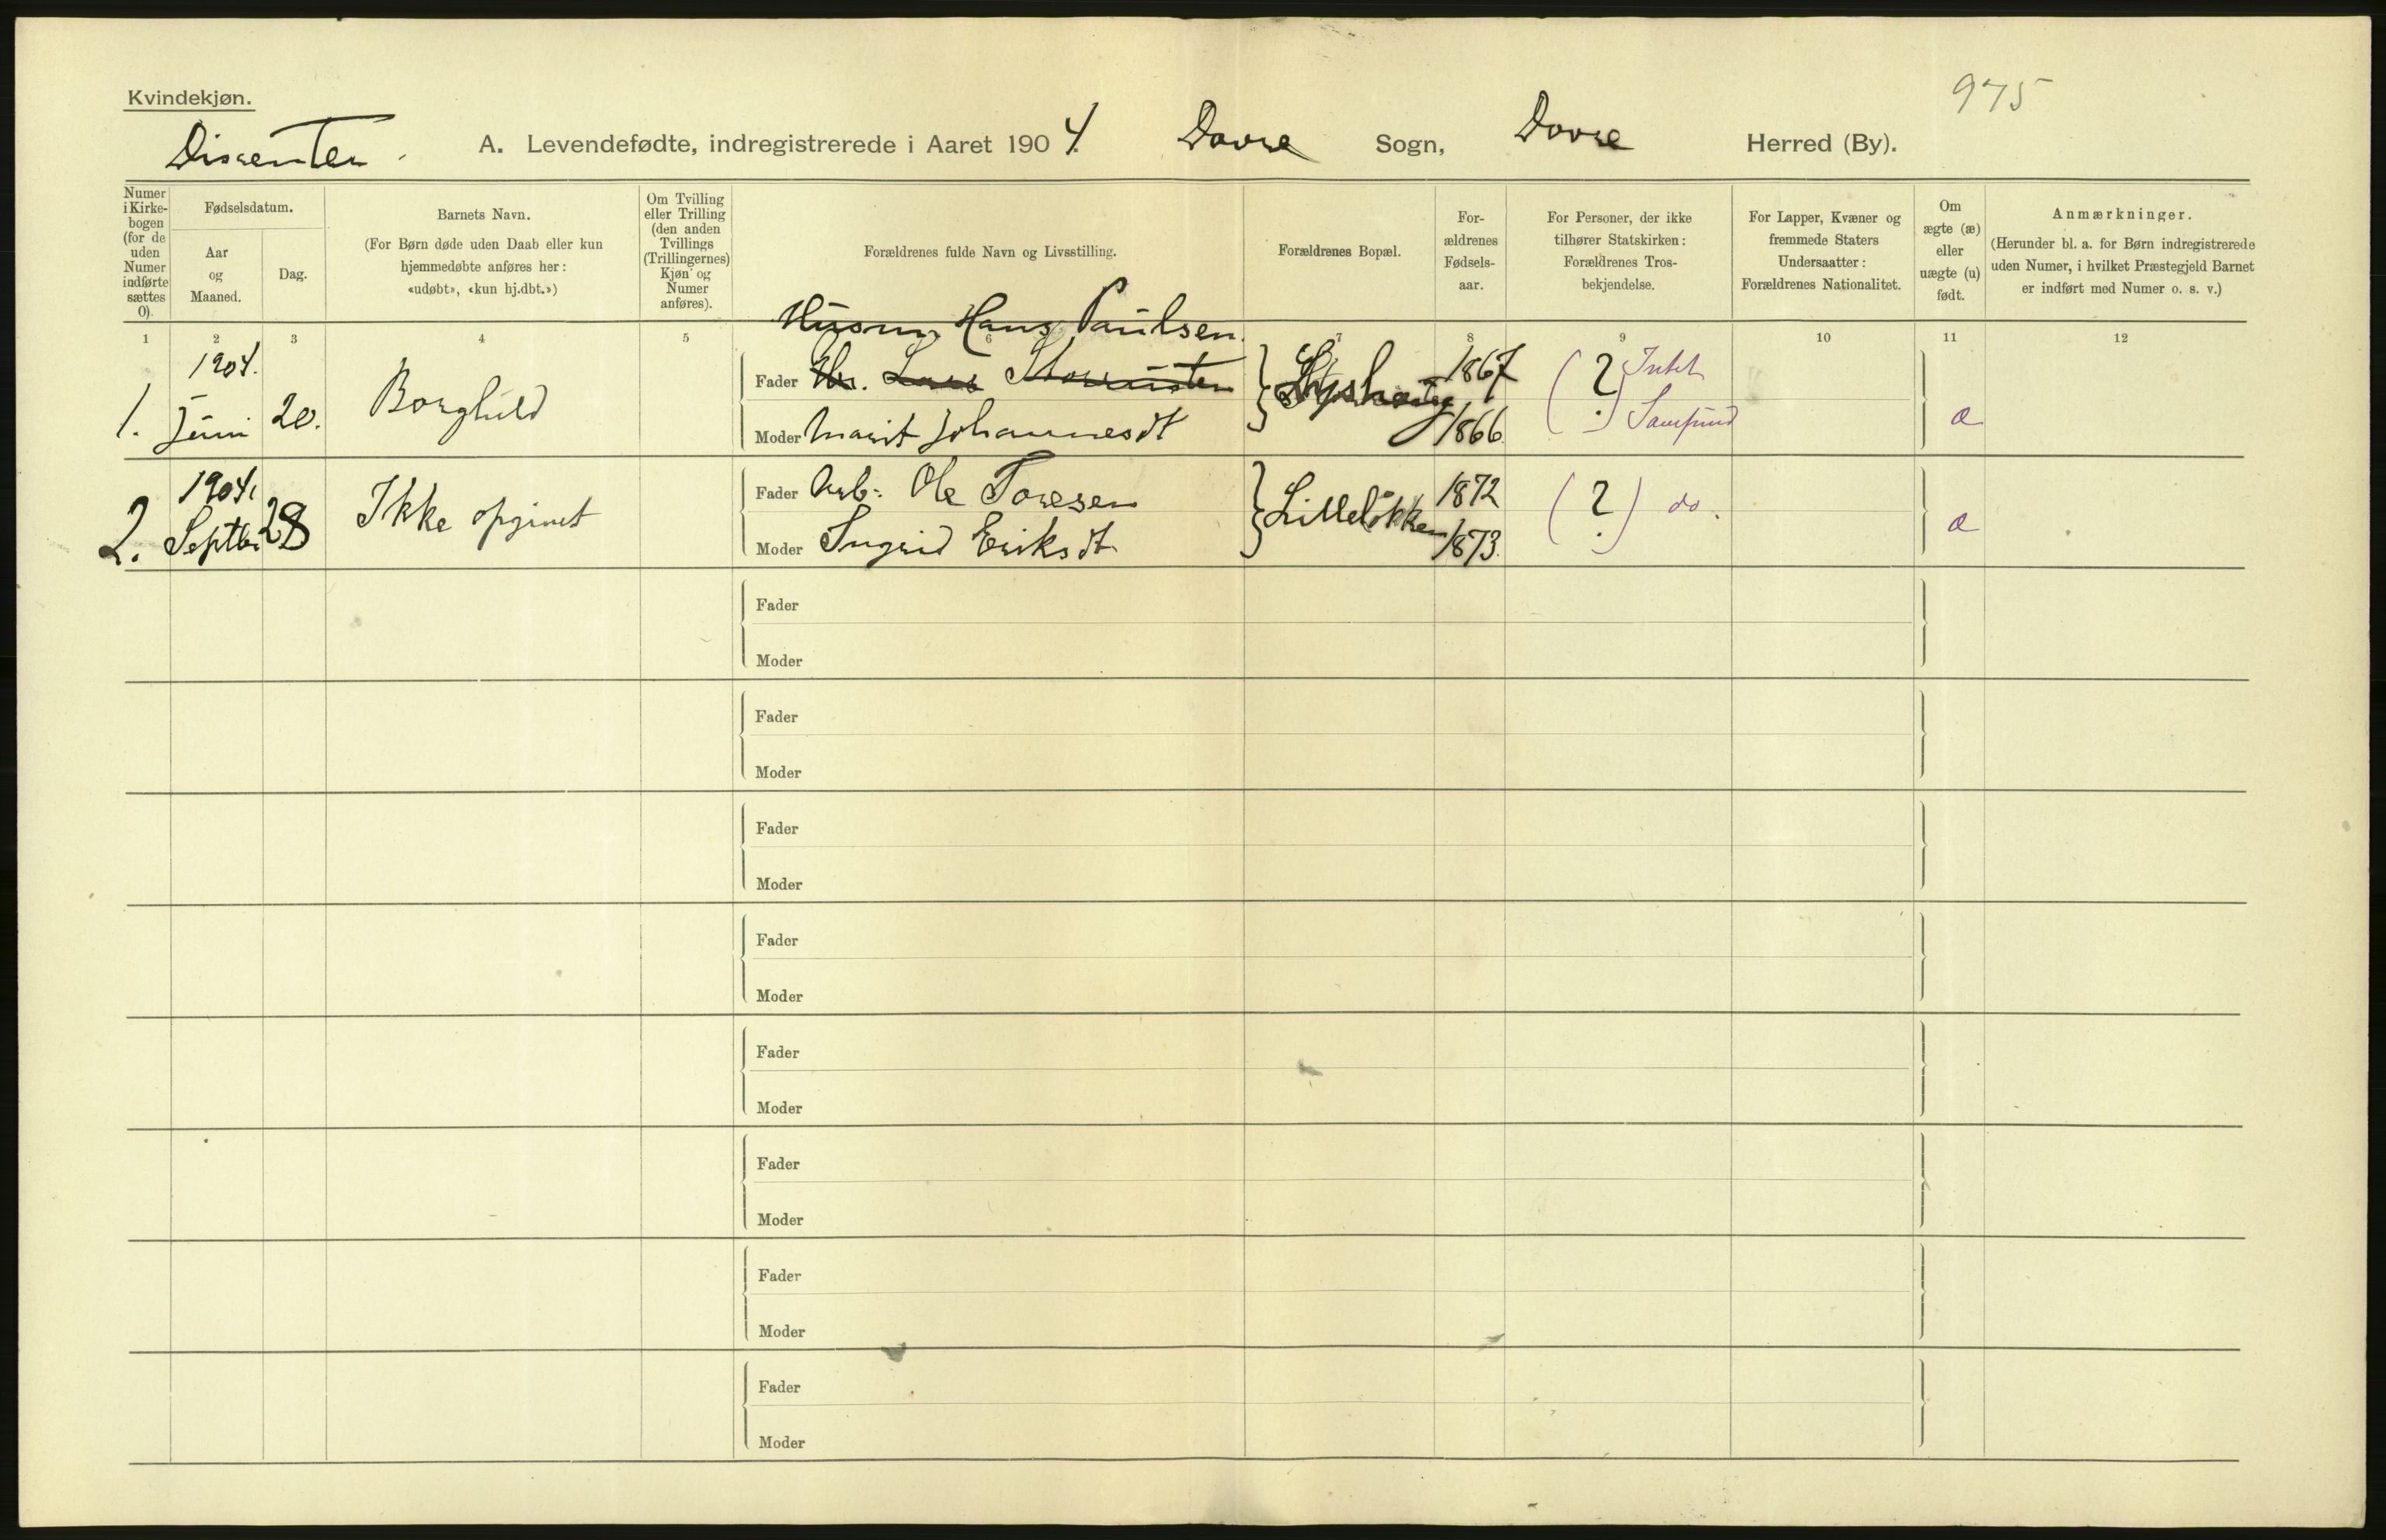 Kvindekjøn.
975
Dissenter.
A. Levendefødte, indregistrerede i Aaret 1904. Dovre Sogn, Dovre Herred (By).
Numer i Kirke- bogen (for de uden Numer indførte sættes 0).
Fødselsdatum.
Aar og Maaned.
Dag.
Barnets Navn.
(For Børn døde uden Daab eller kun
hjemmedøbte anføres her:
«udøbt», «kun hj.dbt.»)
Om Tvilling
eller Trilling
(den anden
Tvillings
(Trillingernes)
Kjøn og
Numer
anføres).
Forældrenes fulde Navn og Livsstilling.
Forældrenes Bopæl.
For-
ældrenes
Fødsels-
aar.
For Personer, der ikke
tilhører Statskirken:
Forældrenes Tros-
bekjendelse.
For Lapper, Kvæner og
fremmede Staters
Undersaatter:
Forældrenes Nationalitet.
Om
ægte (æ)
eller
uægte (u)
født.
Anmærkninger.
(Herunder bl. a. for Børn indregistrerede
uden Numer, i hvilket Præstegjeld Barnet
er indført med Numer o. s. v.)
1 2 3 4 5 6 7 8 9 10 11 12
Husm. Hans Paulsen.
1. 1904. Juni 20. Borghild
Fader Lars 1867
Moder Marit Johannesdt 1866
(?) Intet Samfund
æ
2. 1904. Septbr 28 Ikke opgivet
Fader Arb. Ole Toresen Lilleløkken 1872
Moder Ingrid Eriksdt 1873.
(?) do.
æ
Fader
Moder
Fader
Moder
Fader
Moder
Fader
Moder
Fader
Moder
Fader
Moder
Fader
Moder
Fader
Moder